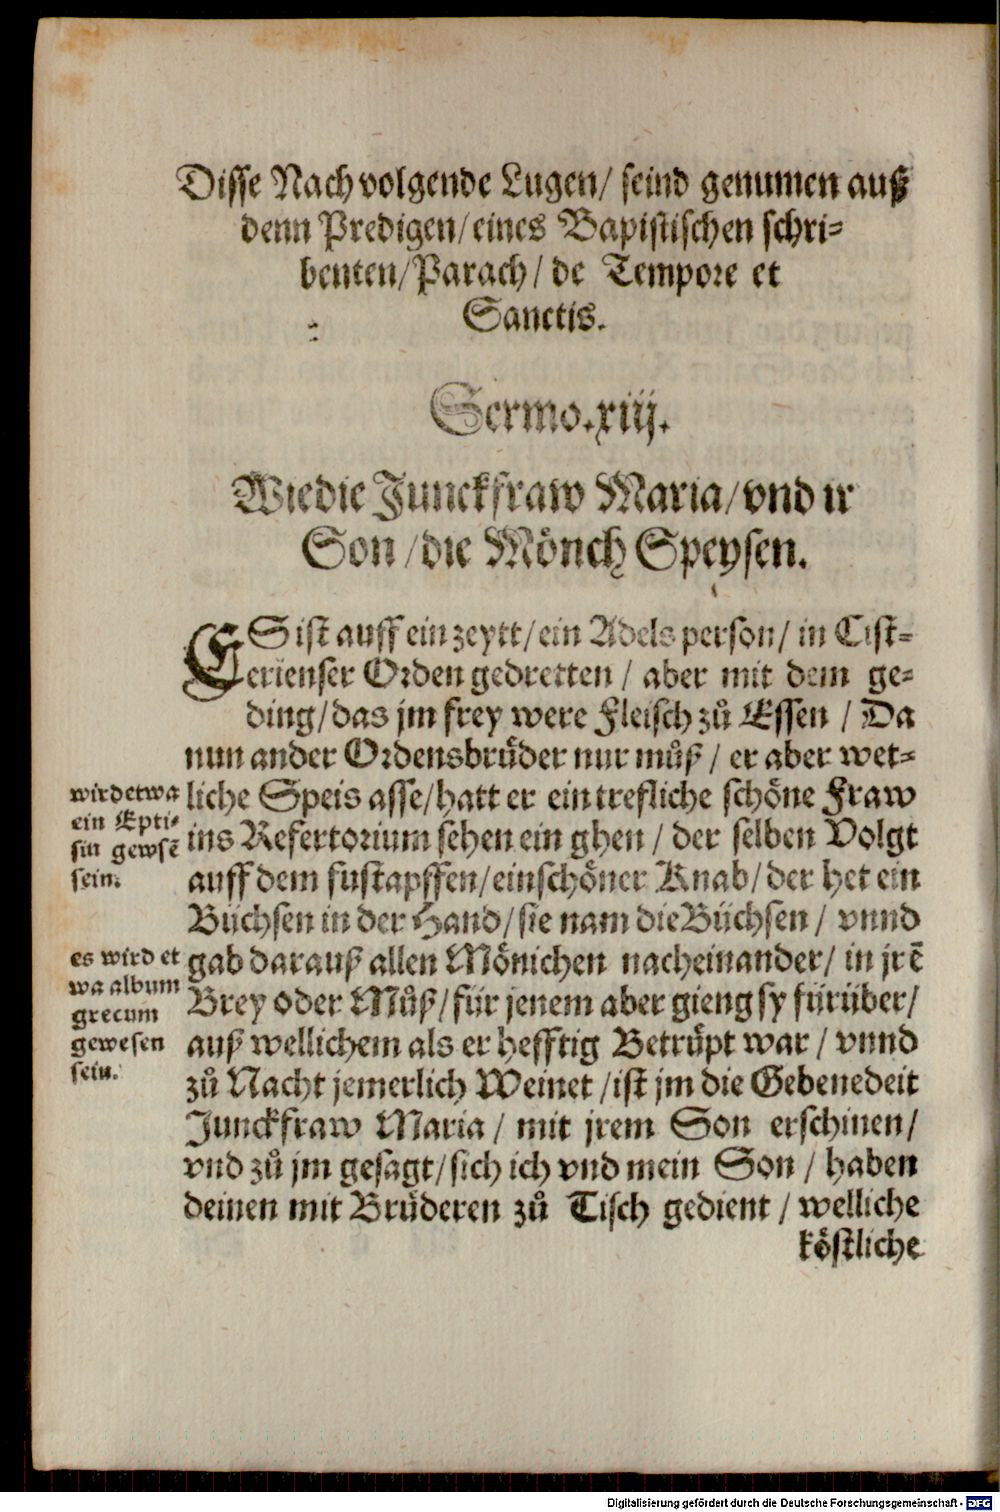 Disse Nachvolgende Lugen/ seind genumen auß
denn Predigen/ eines Bapistischen schri⸗
benten/ Parach/ de Tempore et
Sanctis.
Sermo. xiij.
Wie die Junckfraw Maria/ vnd ir
Son/ die Mönch Speysen.
ES ist auff ein zeytt/ ein Adels person/ in Cist⸗
erienser Orden gedretten/ aber mit dem ge⸗
ding/ das jm frey were Fleisch zů Essen/ Da
nun ander Ordensbrüder nur můß/ er aber wet⸗
liche Speis asse/ hatt er ein trefliche schöne Fraw
ins Refertorium sehen ein ghen/ der selben Volgt
auff dem fustapffen/ ein schöner Knab/ der het ein
Büchsen in der Hand/ sie nam die Büchsen/ vnnd
gab darauß allen Mönichen nacheinander/ in jrē
Brey oder Můß/ für jenem aber gieng sy fürüber/
auß wellichem als er hefftig Betrüpt war/ vnnd
zů Nacht jemerlich Weinet/ ist jm die Gebenedeit
Junckfraw Maria/ mit jrem Son erschinen/
vnd zů jm gesagt/ sich ich vnd mein Son/ haben
deinen mit Brüderen zů Tisch gedient/ welliche
köstliche
wird etwa
ein Epti⸗
sin gewsē
sein.
es wird et
wa album
grecum
gewesen
sein.
Digitalisierung gefördert durch die Deutsche Forschungsgemeinschaft - DFG